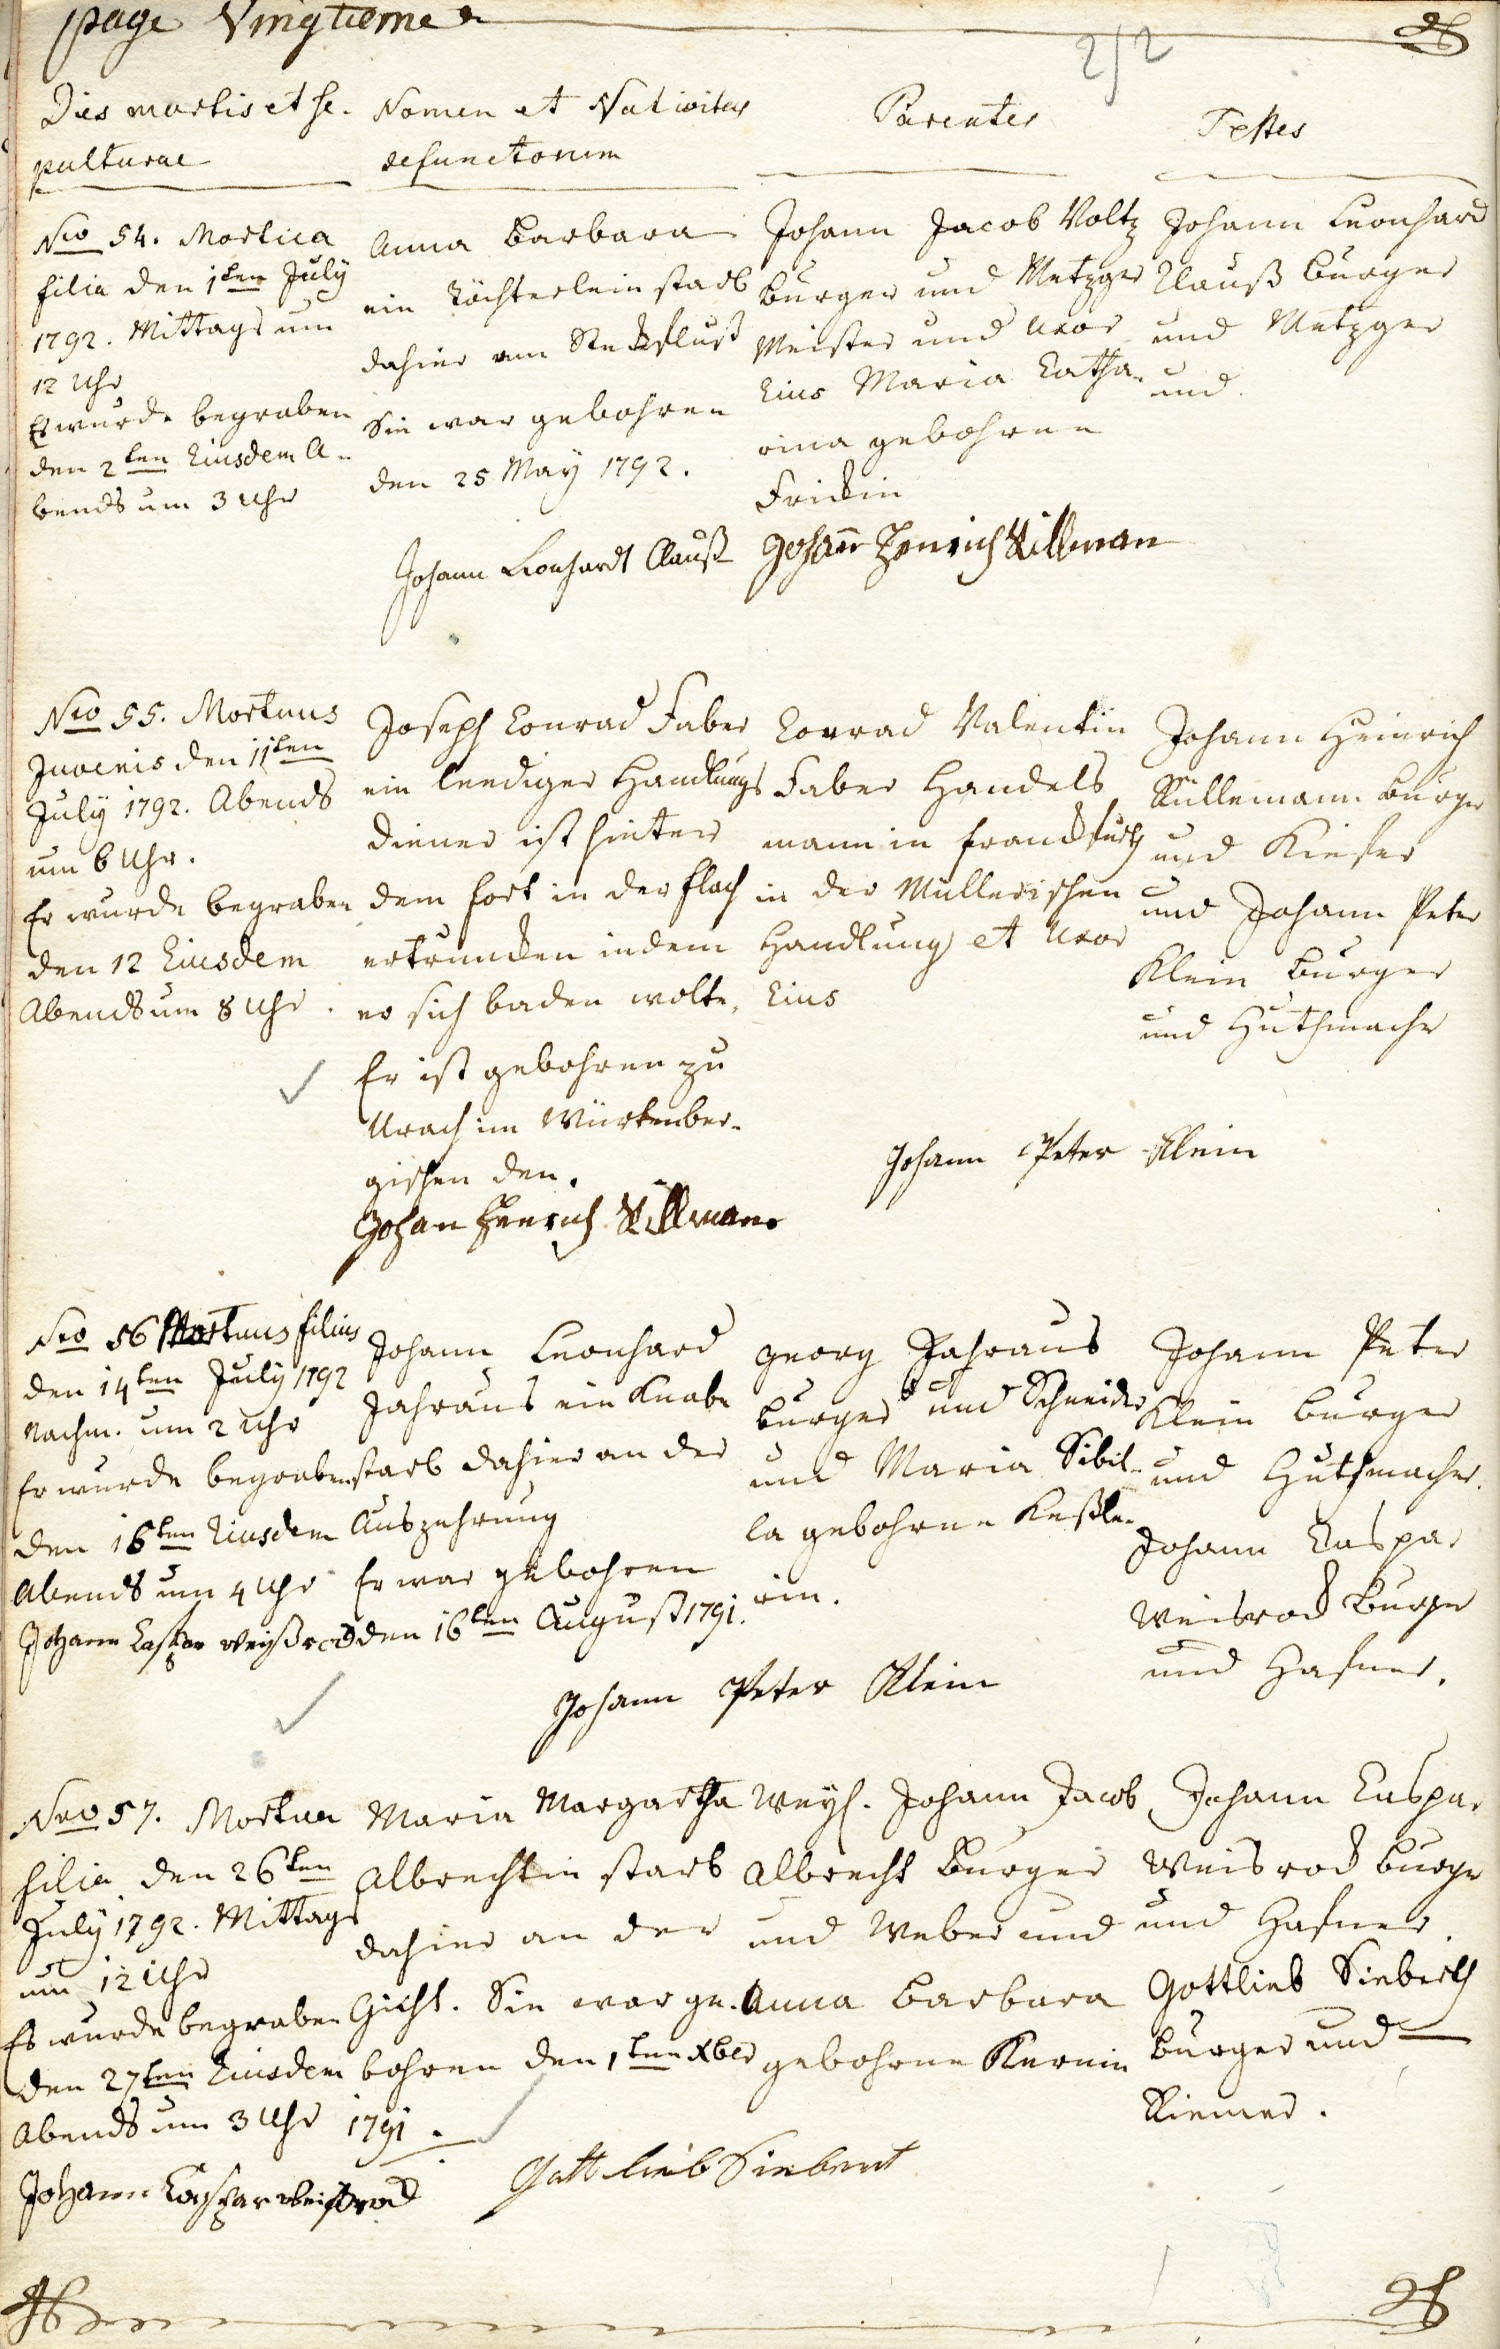 page Vingtieme
212
Dies mortis et se-
pulturae
Nomen et Nativitas
defunctorum
Parentes
Testes
Nro 54. Mortua
filia den 1ten July
1792. Mittags um
12 Uhr
Es wurde begraben
den 2ten Eiusdem A-
bends um 3 Uhr
Anna Barbara
ein Töchterlein starb
dahier am Stekfluss
Sie war gebohren
den 25 May 1792.
Johann Jacob Voltz
burger und Metzger
Meister und Uxor
Eius Maria Catha-
rina gebohrne
Frickin
Johann Leonhard
Clauß burger
und Metzger
und
Johann Leonhardt Clauß
Johann Henrich Killman
Nro 55. Mortuus
Juvenis den 11ten
July 1792. Abends
um 6 Uhr.
Er wurde begraben
den 12 Eiusdem
Abends um 8 Uhr.
Joseph Conrad Faber
ein lediger Handlungs
diener ist hinter
dem fort in der flach
ertrunken indem
er sich baden wolte.
Er ist gebohren zu
Urach im Würtenber-
gischen den.
Conrad Valentin
Faber Handels
mann in franckfurth
in der Müllerischen
Handlung et Uxor
Eius
Johann Heinrich
Küllemann burger
und Kiefer
und Johann Peter
Klein burger
und Huthmacher
Johann Peter Klein
Johan Henrich Killman
Nro 56 Mortuus filius
den 14ten July 1792
Nachm. um 2 Uhr
Er wurde begraben
den 16ten Eiusdem
Abends um 4 Uhr
Johann Caspar Weißrod
Johann Leonhard
Jahraus ein Knabe
starb dahier an der
Auszehrung
Er war gebohren
den 16ten August 1791.
Georg Jahraus
burger und Schneider
und Maria Sibil-
la gebohrne Keßle-
rin.
Johann Peter
Klein burger
und Huthmacher.
Johann Caspar
Weisrod Burger
und Hafner.
Johann Peter Klein
Nro 57. Mortua
filia den 26ten
July 1792. Mittags
um 12 Uhr
Es wurde begraben
den 27ten Eiusdem
Abends um 3 Uhr
Johann Caspar Weißrod
Maria Margartha
Albrechtin starb
dahier an der
Gicht. Sie war ge-
bohren den 1ten Xber
1791.
Weyl. Johann Jacob
Albrecht Burger
und Weber und
Anna Barbara
gebohrne Kernin
Johann Caspar
Weisrod burger
und Hafner.
Gottlieb Sieberth
burger und
Riemer.
Gottlieb Siebert